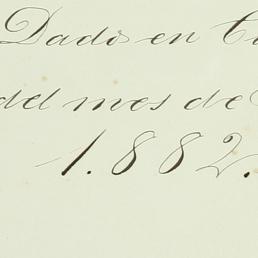 Dado en
del mes de
1.882.